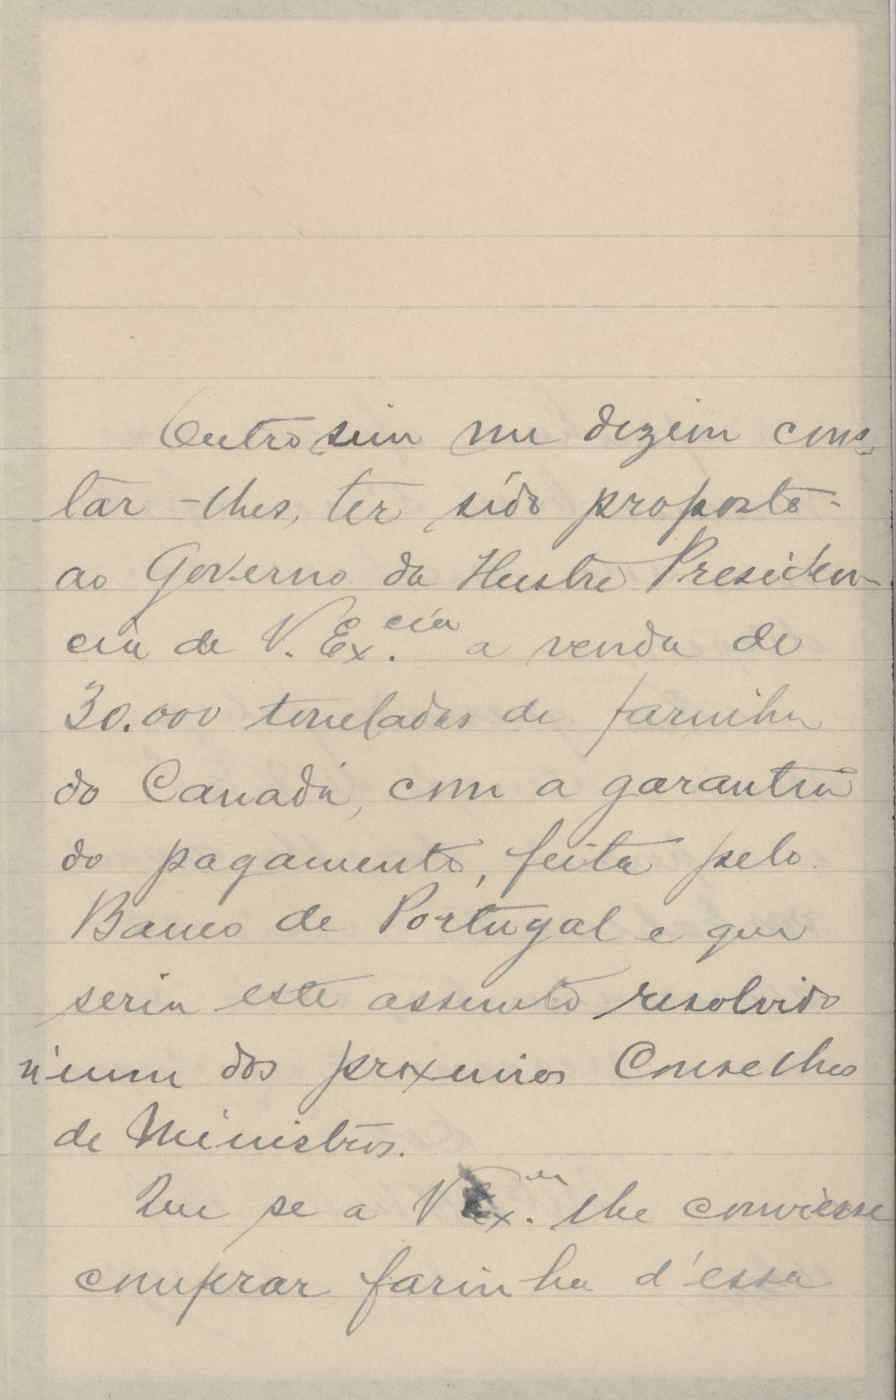 Outrosim me dizem cons-
tar-lhes, ter sido proposto-
ao Governo da Illustre Presiden-
cia de V. Ex.cia a venda de
30.000 toneladas de farinha
do Canadá, com a garantia
do pagamento, feita pelo
Banco de Portugal e que
seria este assunto resolvido
n'um dos proximos Conselhos
de Ministros.
Que se a V Ex.cia lhe conviesse
comprar farinha d'essa